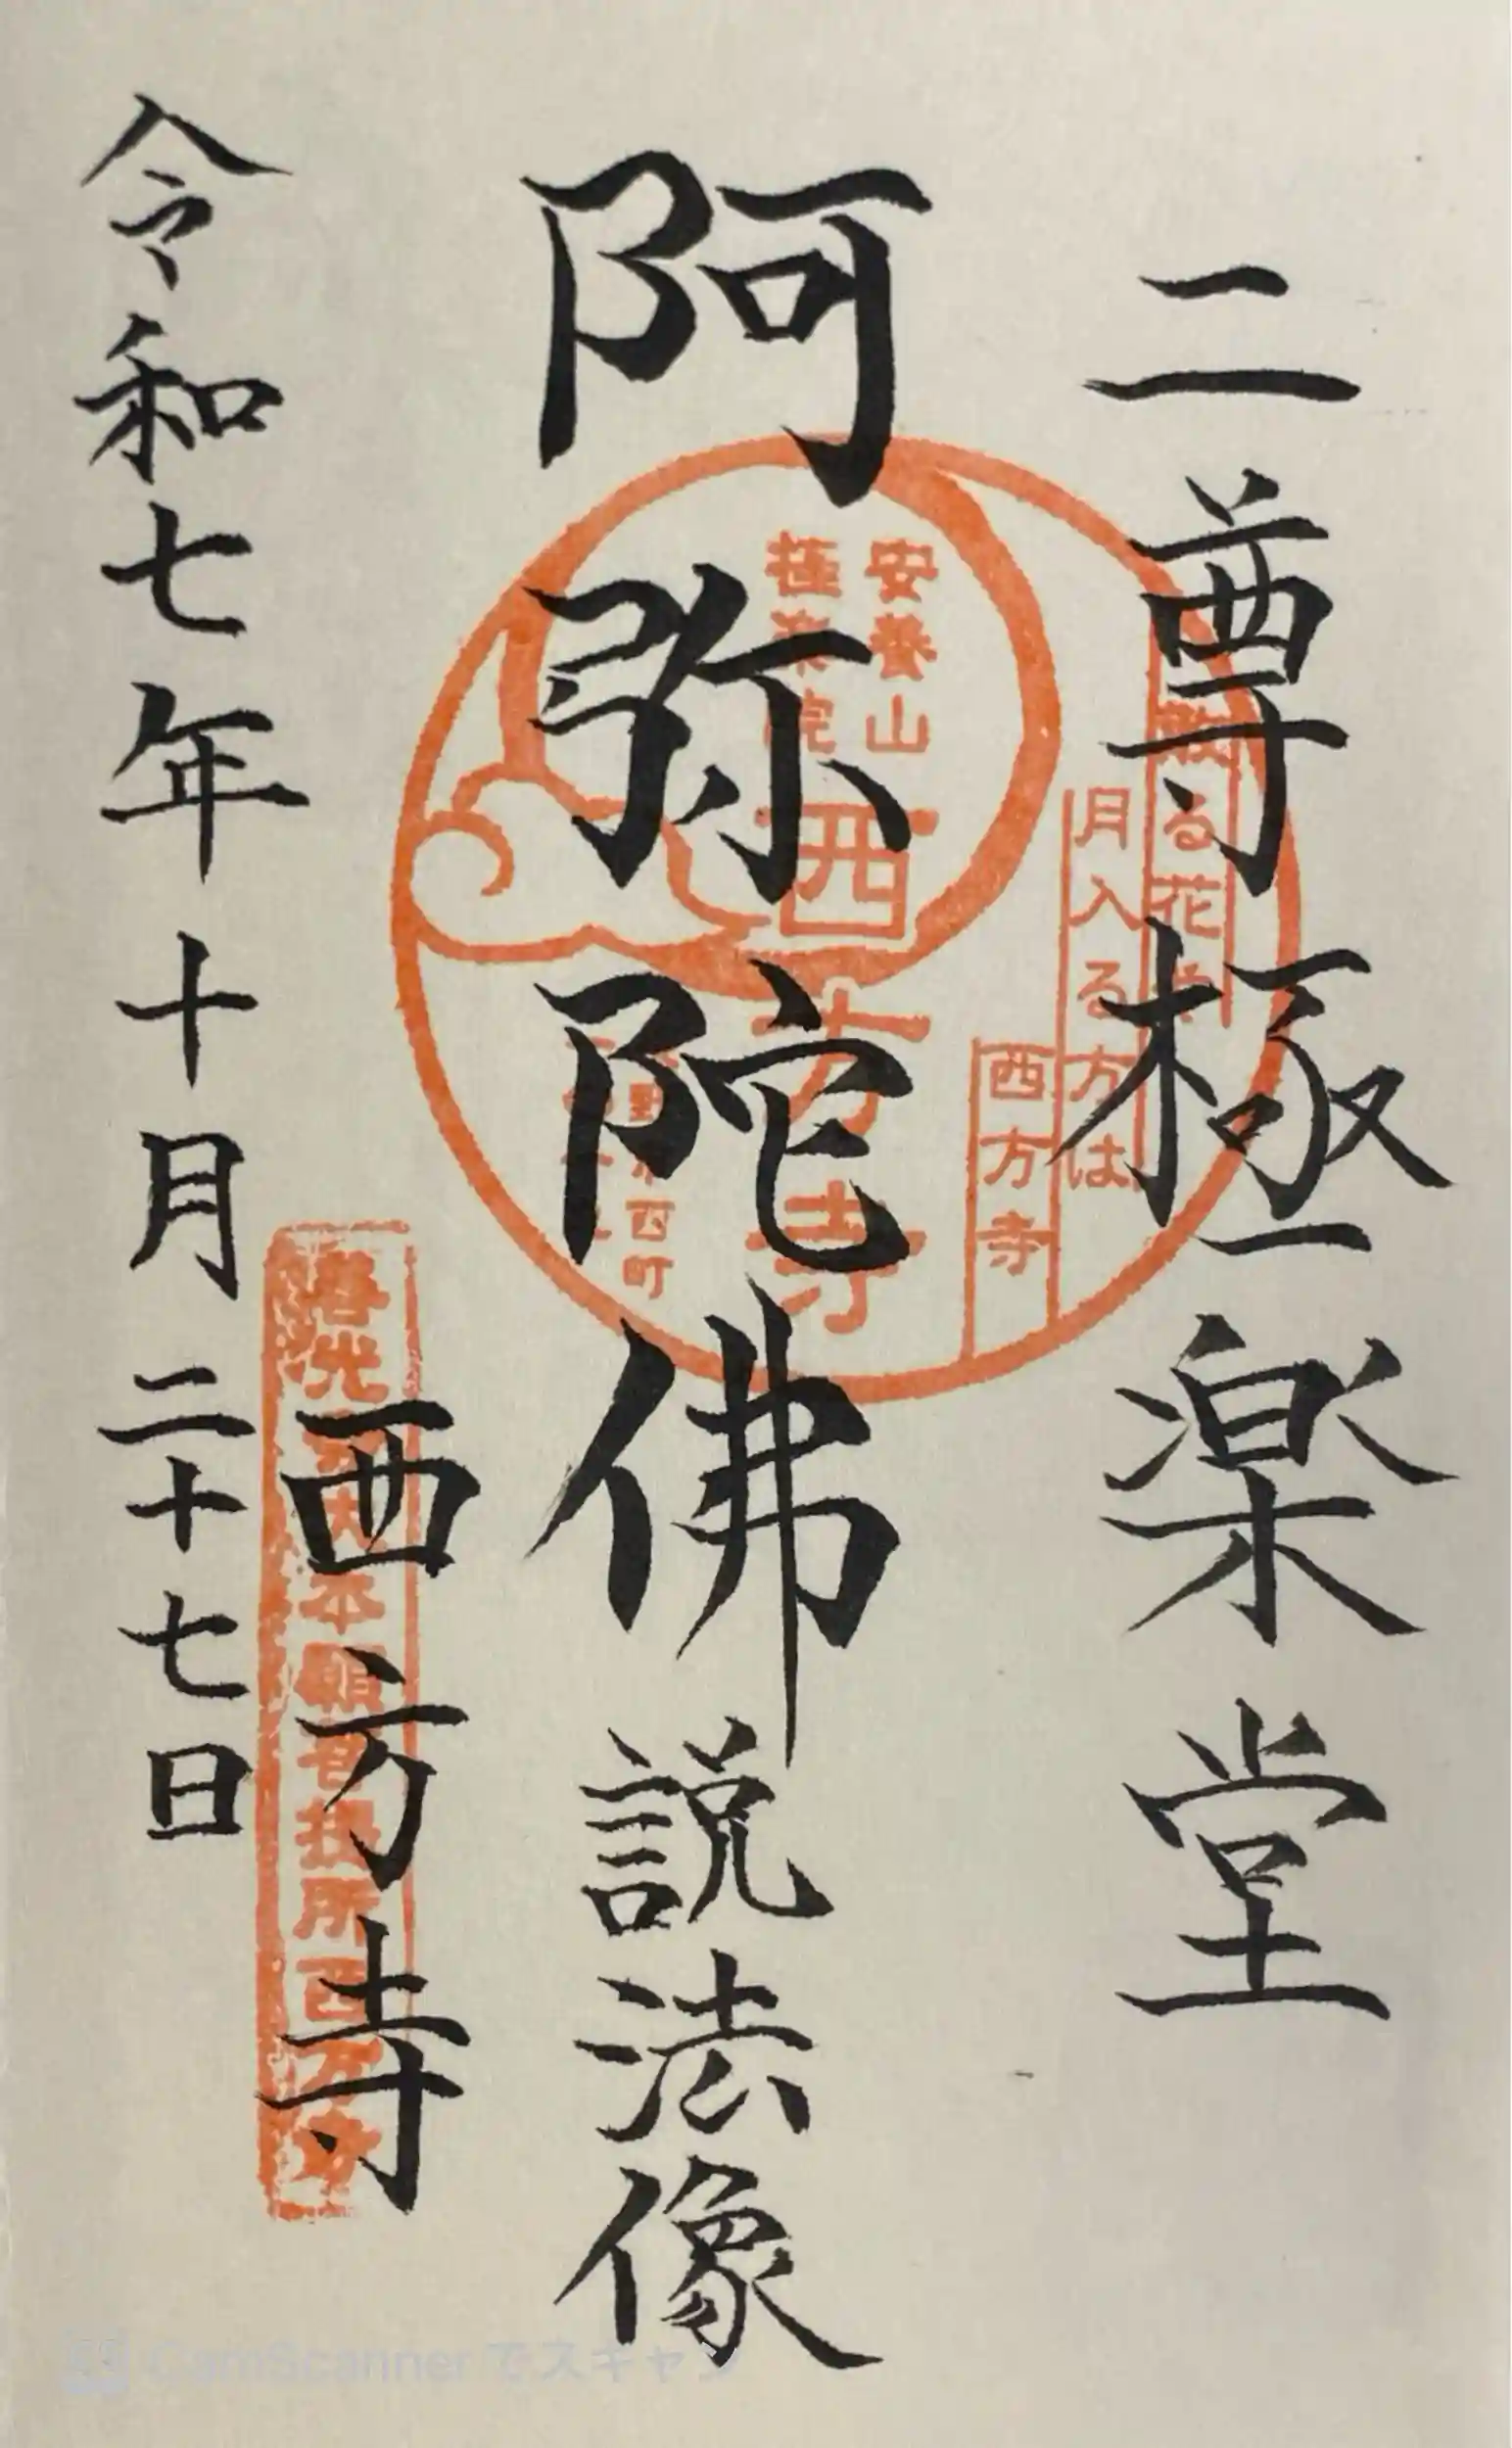 二尊極楽堂
阿弥陀佛説法像
西方寺
令和七年十月二十七日
散る花や
月入る方は
西方寺
安養山
極楽院
西方寺
西町
本願菩提所西方寺
CamScannerでスキャン